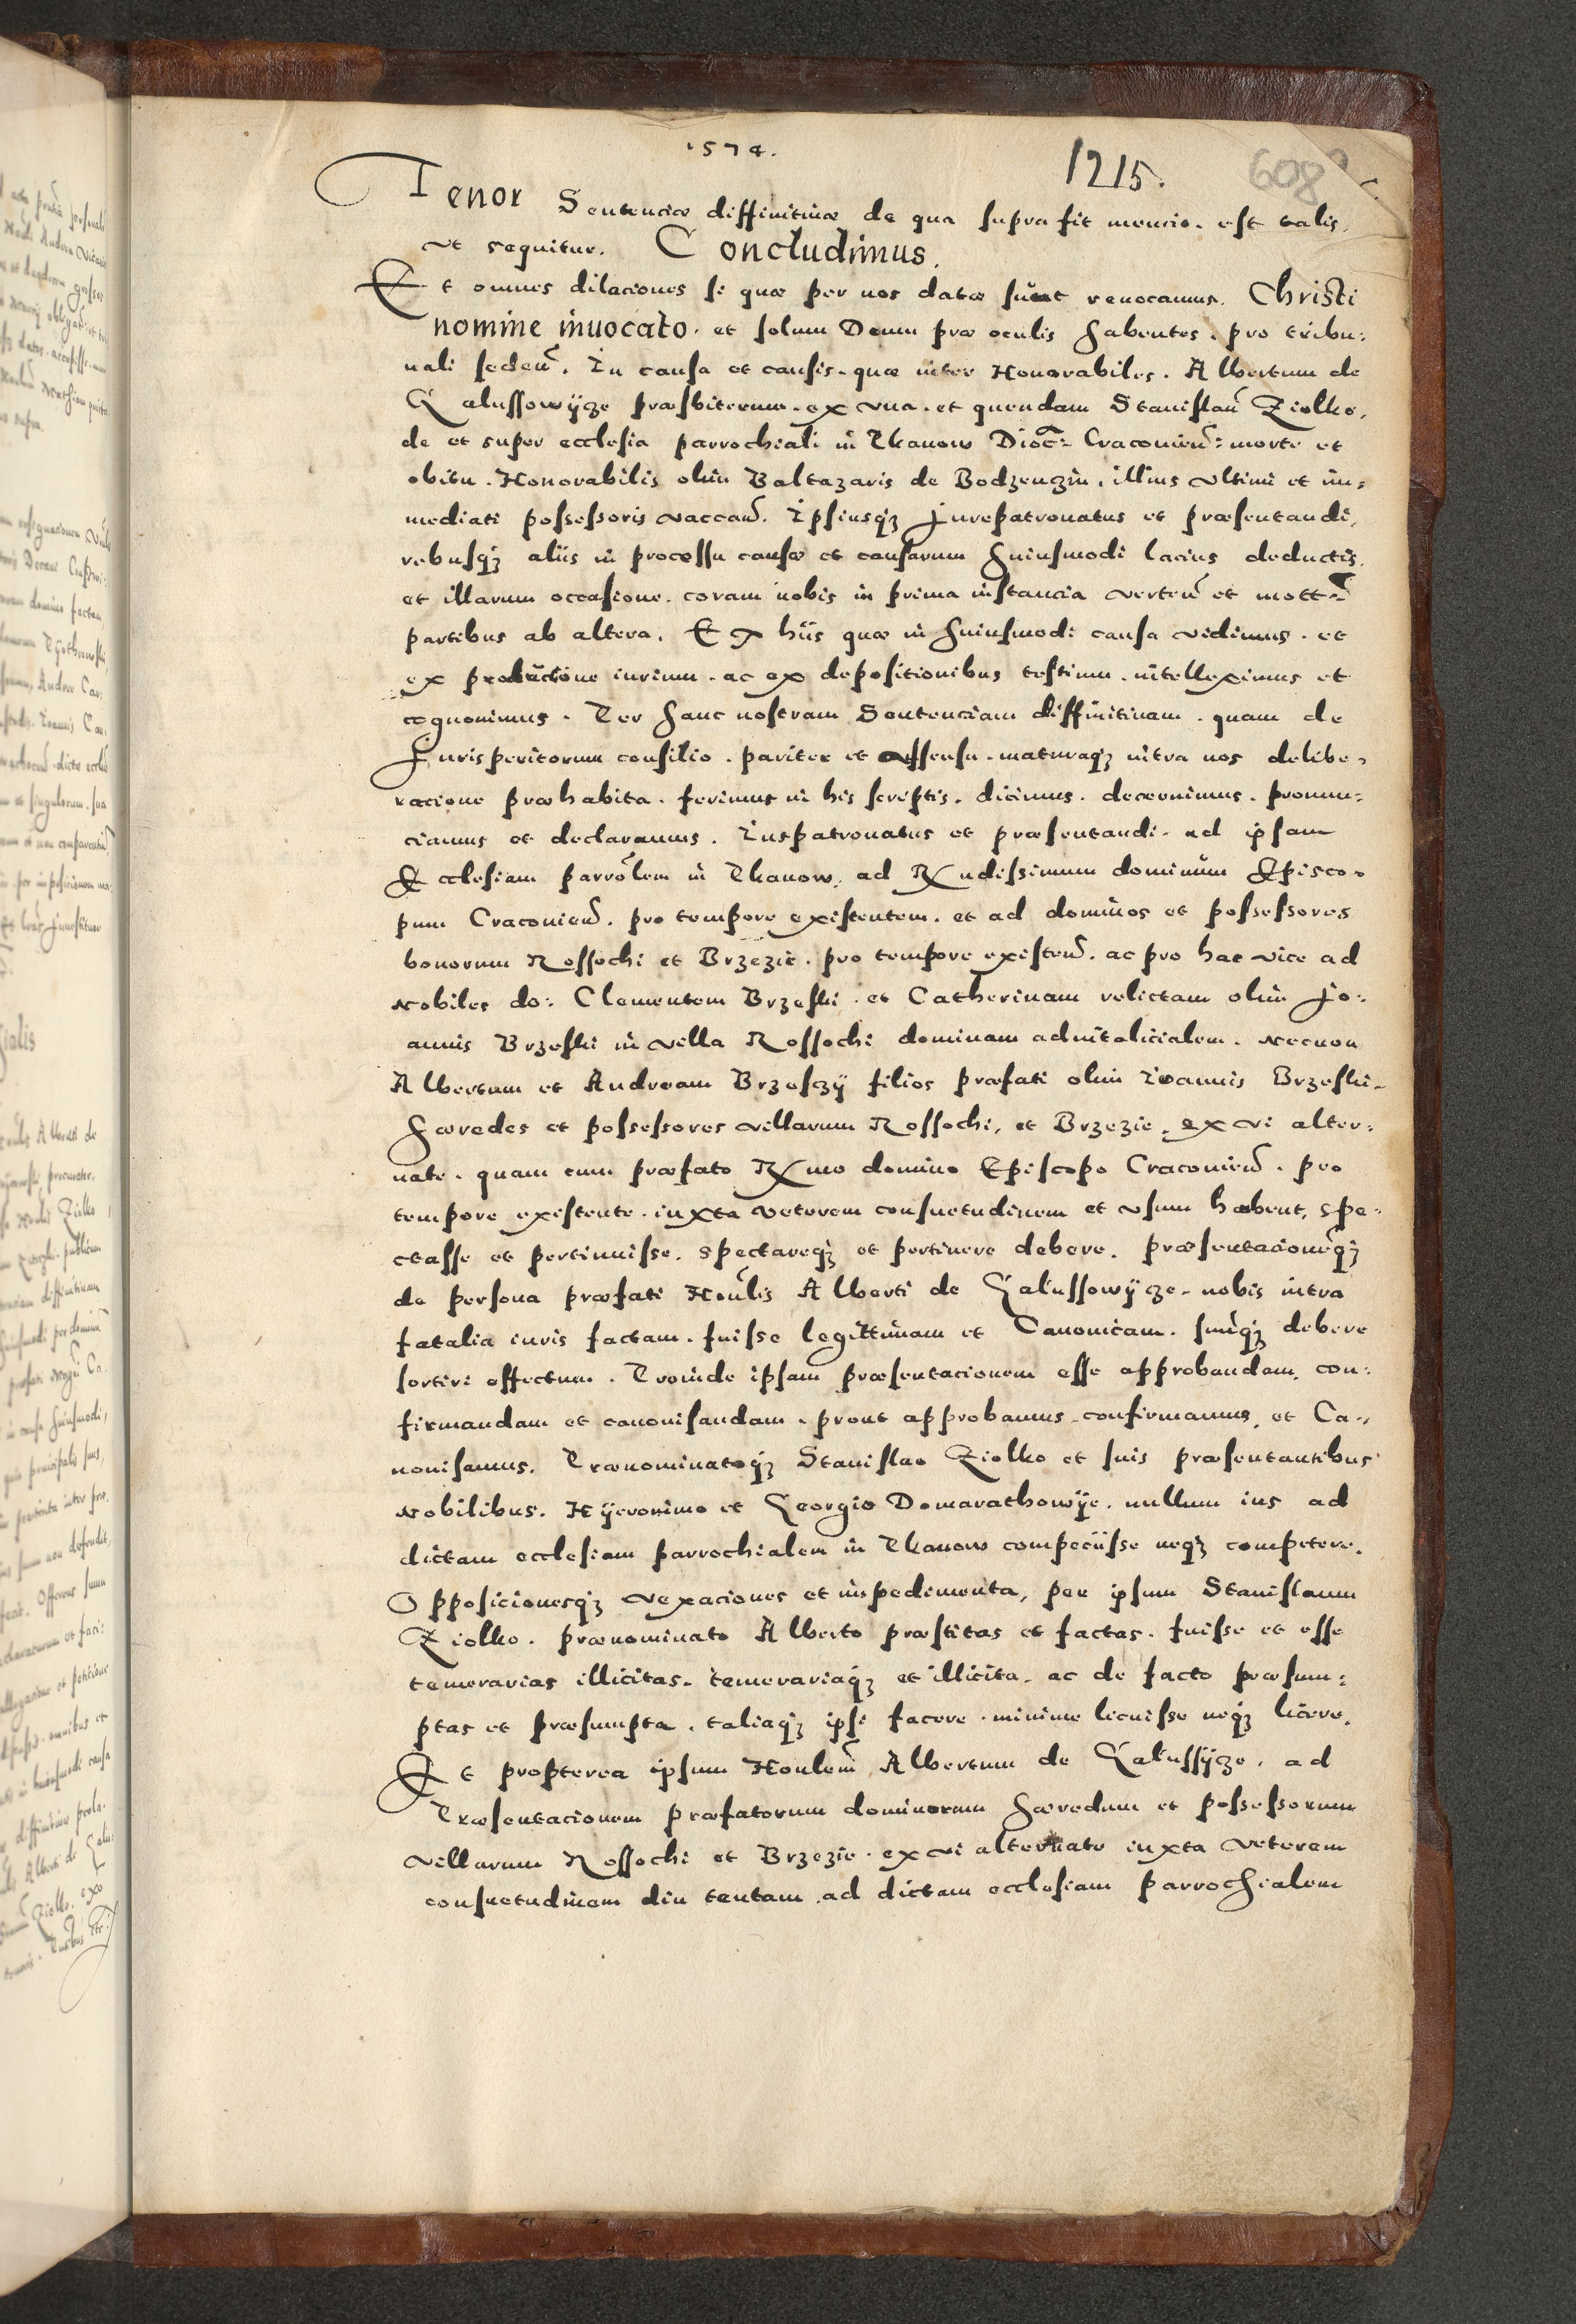 1574.
1215.
608
Tenor Sentenciæ diffinitiuæ de qua supra fit mencio. est talis.
vt sequitur. Concludimus.
Et omnes dilaciones si quæ per nos datæ sunt reuocamus. Christi
nomine inuocato. et solum Deum præ oculis habentes. pro tribu:
nali seden̄. In causa et causis. quæ inter Honorabiles. Albertum de
Galussowÿcze præsbiterum. ex vna. et quendam Stanislaū Ziolko.
de et super ecclesia parrochiali in Tkanow Dioc̄: Cracouien̄: morte et
obitu. Honorabilis olim Baltazaris de Bodzenczin. illius vltimi et im:
mediati possessoris vaccan̄. Ipsiusqȝ Jurepatronatus et præsentandi,
rebusqȝ aliis in processu causæ et causarum huiusmodi lacius deductis.
et illarum occasione. coram nobis in prima instancia verten̄ et mott̄:
partibus ab altera. Ex hiis quæ in huiusmodi causa vidimus. et
ex productione iurium. ac ex depositionibus testium. intelleximus et
cognouimus. Per hanc nostram Sentenciam diffinitiuam. quam de
Jurisperitorum consilio. pariter et assensu. maturaqȝ intra nos delibe:
racione præhabita. ferimus in his scriptis. dicimus. decernimus. pronun:
ciamus et declaramus. Iuspatronatus et præsentandi. ad ipsam
Ecclesiam parrōlem in Tkanow. ad Rxndissimum dominum Episco:
pum Cracouien̄. pro tempore existentem. et ad dominos et possessores
bonorum Rossochi et Brzezie. pro tempore existen̄. ac pro hac vice ad
Nobiles do: Clementem Brzeski. et Catherinam relictam olim Jo:
annis Brzeski in villa Rossochi dominam aduitalicialem. Necnon
Albertum et Andream Brzesczÿ filios præfati olim Ioannis Brzeski.
Hæredes et possessores villarum Rossochi, et Brzezie. ex vi alter:
nate. quam cum præfato Rxmo domino Episcopo Cracouien̄. pro
tempore existente. iuxta veterem consuetudinem et vsum habent, spe:
ctasse et pertinuisse. spectareqȝ et pertinere debere. præsentacionēqȝ
de persona præfati Honl̄is Alberti de Galussowÿcze. nobis intra
fatalia iuris factam. fuisse legittimam et Canonicam. suūqȝ debere
sortiri effectum. Proinde ipsam præsentacionem esse approbandam. con:
firmandam et canonisandam. prout approbamus. confirmamus. et Ca:
nonisamus. Prænominatoqȝ Stanislao Ziolko et suis præsentantibus
Nobilibus. Hÿeronimo et Georgio Domarathowÿe. nullum ius ad
dictam ecclesiam parrochialem in Tkanow competiisse neqȝ competere.
Opposicionesqȝ vexaciones et impedimenta, per ipsum Stanislaum
Ziolko. prænominato Alberto præstitas et factas. fuisse et esse
temerarias illicitas. temerariaqȝ et illicita. ac de facto præsum:
ptas et præsumpta. taliaqȝ ipsi facere. minime licuisse neqȝ licere.
Et propterea ipsum Honlem̄ Albertum de Galussÿcze. ad
Præsentacionem præfatorum dominorum hæredum et possessorum
villarum Rossochi et Brzezie. ex vi alternate iuxta veterem
consuetudinem diu tentam. ad dictam ecclesiam parrochialem